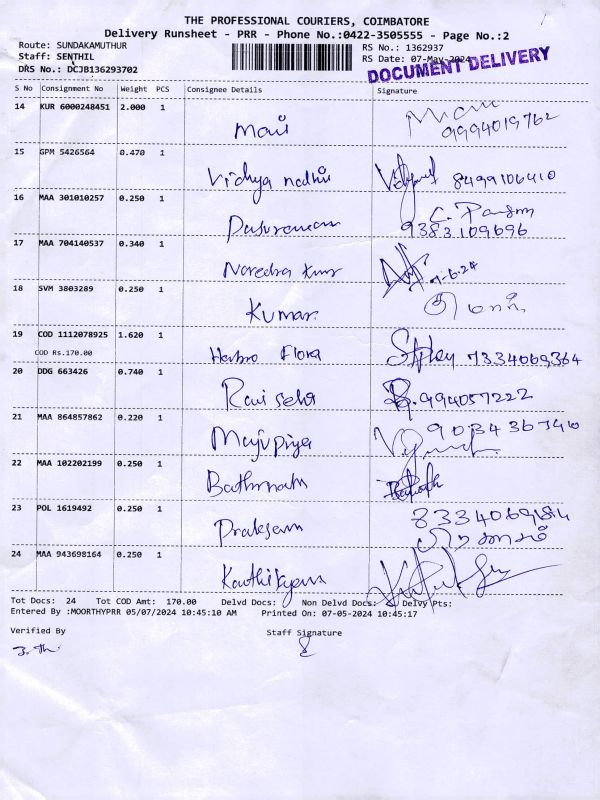 THE PROFESSIONAL COURIERS, COIMBATORE
Delivery Runsheet - PRR - Phone No.:0422-3505555 - Page No.:2
Route: SUNDAKAMUTHUR RS No.: 1362937
Staff: SENTHIL RS Date: 07-May-2024
DOCUMENT DELIVERY
DRS No.: DCJB136293702
S No Consignment No Weight PCS Consignee Details Signature
14 KUR 6000248451 2.000 1
Mani
9994019762
15 GPM 5426564 0.470 1
Vidhya nadhi 8499106410
16 MAA 301010257 0.250 1
9383109696
17 MAA 704140537 0.340 1
Narendra kumar
18 SVM 3803289 0.250 1
Kumar
குமார்
19 COD 1112078925 1.620 1
COD Rs.170.00
Herbro Flora 7334069364
20 DDG 663426 0.740 1
994057222
21 MAA 864857862 0.220 1
Majupiya 9034367340
22 MAA 102202199 0.250 1
Bathmnath
23 POL 1619492 0.250 1
Prakasam
பிரகாசம்
24 MAA 943698164 0.250 1
Karthikyan
Tot Docs: 24 Tot COD Amt: 170.00 Delvd Docs: Non Delvd Docs: Delvy Pts:
Entered By :MOORTHYPRR 05/07/2024 10:45:10 AM Printed On: 07-05-2024 10:45:17
Verified By Staff Signature